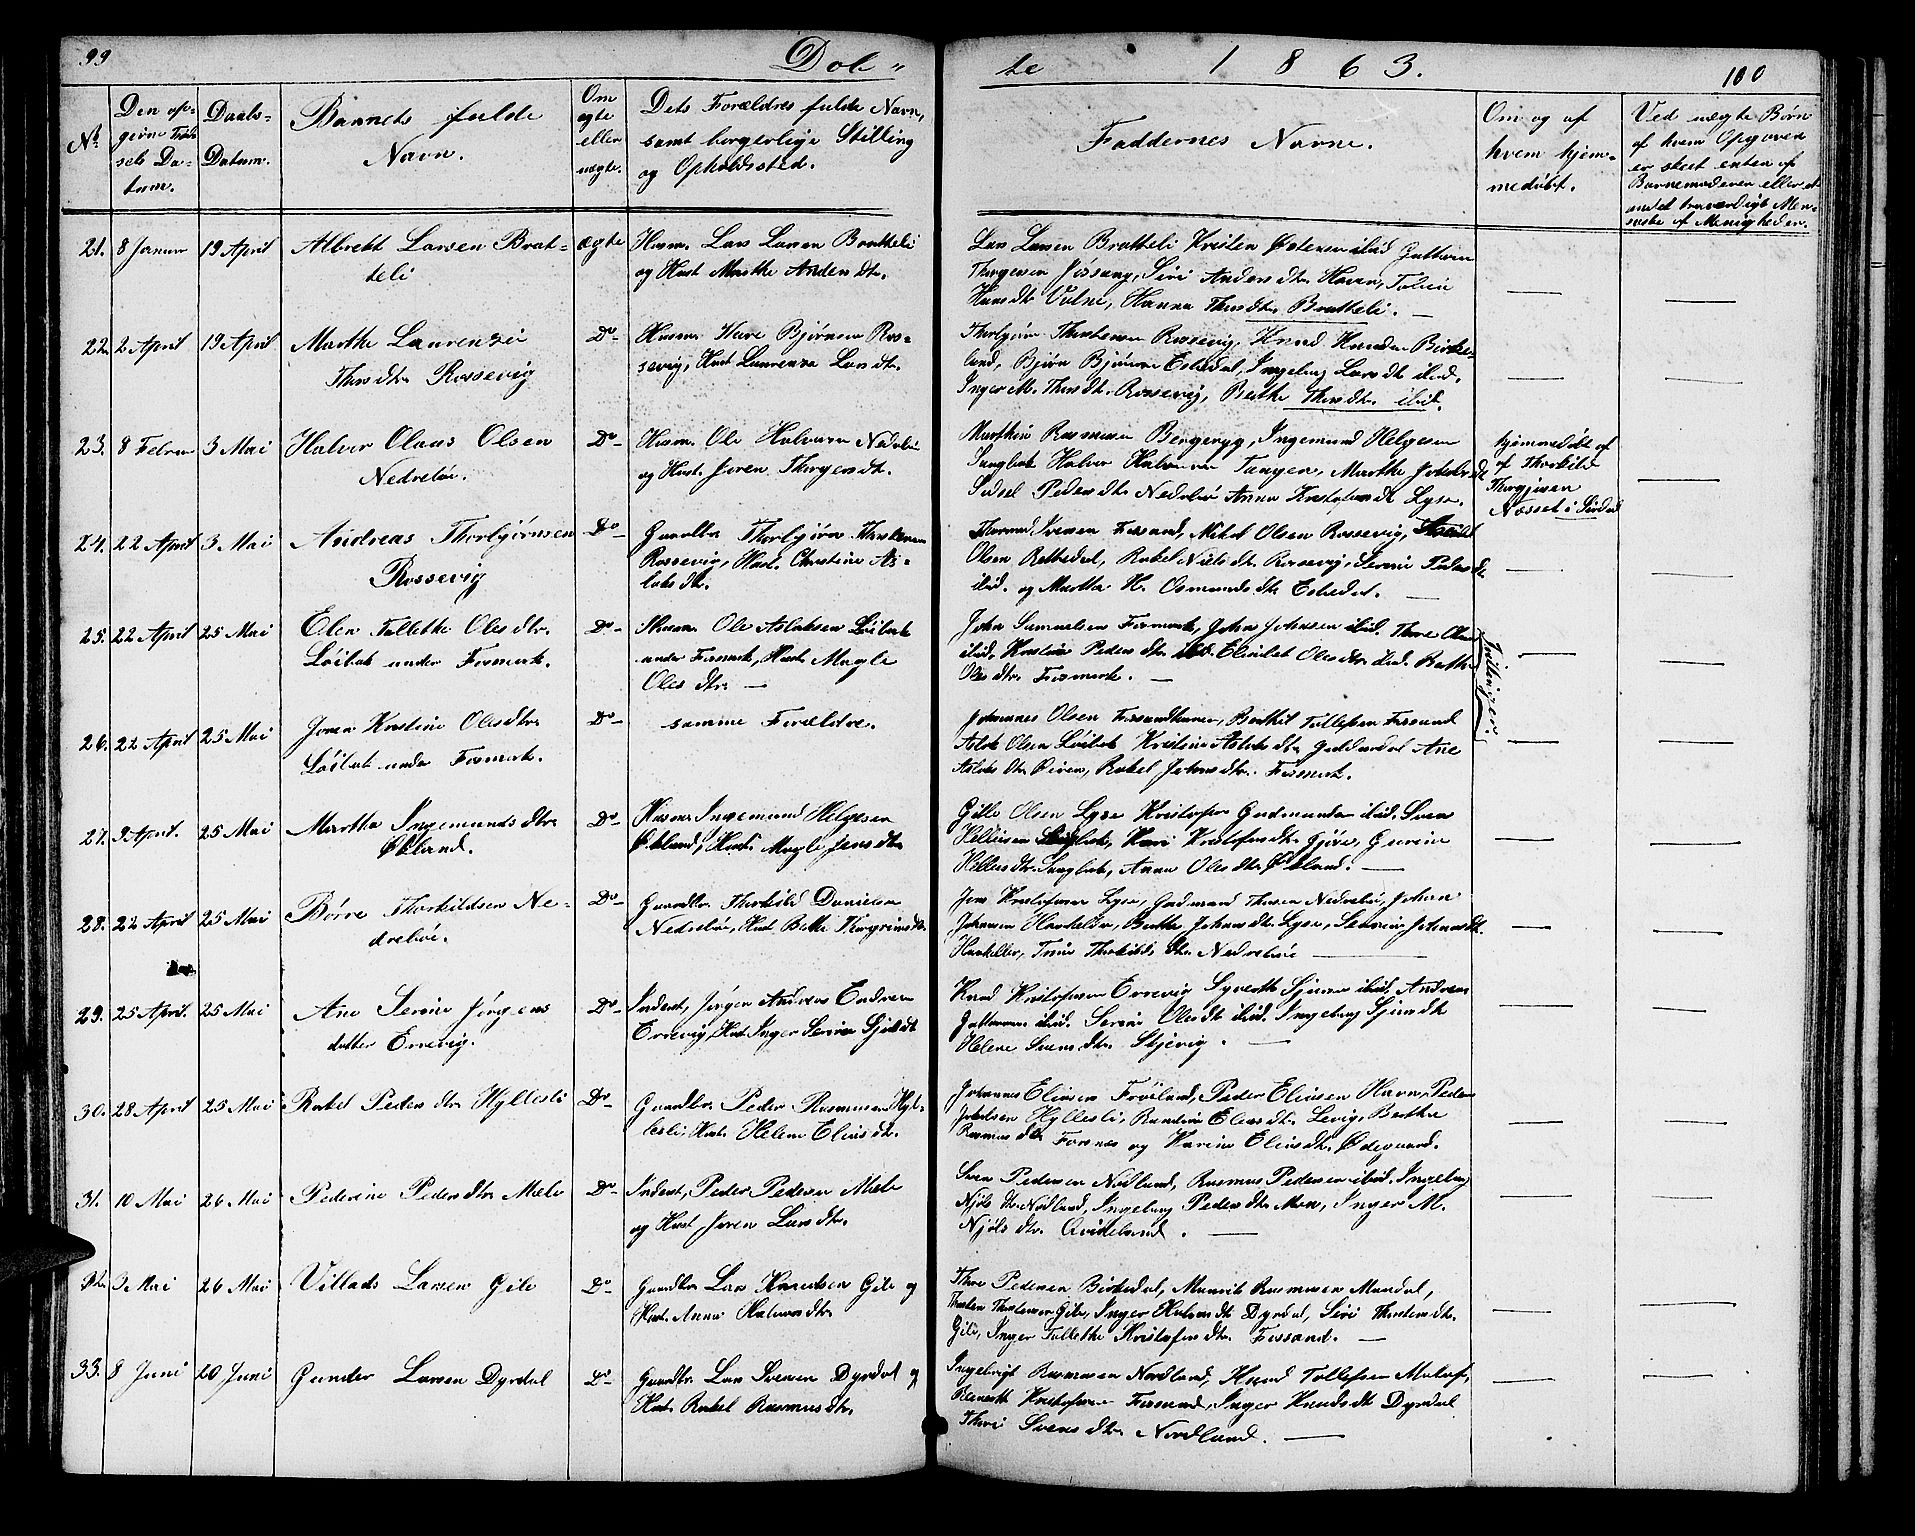 99 Døb- te 1863. 100
No.
Den op-
givne Fød-
sels Da-
tum.
Daabs-
Datum.
Barnets fulde
Navn.
Om
ægte
eller
uægte.
Dets Forældres fulde Navn,
samt borgerlige Stilling
og Opholdssted.
Faddernes Navne.
Om og af
hvem hjem-
medøbt.
Ved uægte Børn
af hvem Opgaven
er skeet enten af
Barnemoderen eller et
andet troværdigt Men-
neske af Menigheden.
21. 8 Januar 19 April Albrekt Larsen Brat-
teli
ægte Husm. Lars Larsen Bratteli
og Hust Marthe Andersdtr.
Lars Larsen Bratteli Kristen Østensen ibid
Thorgersen Jøssang, Siri Andersdtr.
Hansdtr Valne, Hanna Thorsdtr Bratteli. —
22. 2 April 19 April Marthe Laurenzei
Thorsdtr Rossevig
Do- Husm. Thore Bjørnsen Ros-
sevig, Hust Laurenze Larsdtr.
Thorbjørn Thorstensen Rossevig, Knud Knudsen Birke-
land, Bjørn Bjørnsen Eskedal, Ingeborg Larsdtr ibid.
Inger M. Thorsdtr. Rossevig, Berthe Thorsdtr. ibid.
23. 8 Februar 3 Mai Halvor Olaus Olsen
Nedrebøe.
Do- Husm. Ole Halvorsen Nedrebøe
og Hust. Joren Thorgersdtr.
Rasmussen Bergeryg, Ingemund Helgesen
Sangbak Halvor Halvorsen Tangen, Marthe
Sidsel Pedersdtr Nedrebøe Anna Kristofersdtr Lyse.
hjemmedøbt af
af Thorkild
Thorgjersen
Næsset i Sirdal
24. 22 April 3 Mai Andreas Thorbjørnsen
Rossevig
Do- Gaardbr. Thorbjørn Thorstensen
Rossevig, Hust. Christine As-
laksdtr.
Thormod Svensen Forsand, Mikal Olsen Rossevig,
Olsen Rettedal, Rakel Nielsdtr Rossevig, Serine Pedersdtr
ibid. og Martha H. Osmundsdtr Eskedal. —
25. 22 April 25 Mai Elen Tallette Olesdtr.
Løibak under Fosmark.
Do- Husm. Ole Aslaksen Løibak
under Fosmark, Hust. Magle
Olesdtr. —
John Samuelsen Fosmark, John Johnsen ibid. Thore Olsen
ibid, Kristine Pedersdtr ibid. Elisabet Olesdtr. ibid. Berthe
Olesdtr. Fosmark. —
Tvillinger.
26. 22 April 25 Mai Joren Kristine Olesdtr.
Løibak under Fosmark.
Do- samme Forældre.
Johannes Olsen Forsandhavn, Berthel Tollefsen Forsand
Aslak Olsen Løibak Kristine Aslaksdtr Ane
Aslaksdtr Øiren, Rakel Johnsdtr. Fosmark.
27. 9 April. 25 Mai Martha Ingemundsdtr
Økland.
Do- Husm. Ingemund Helgesen
Økland, Hust. Magle Jensdtr
Gille Olsen Lyse Kristofer Gudmundsen ibid. Sven
Helliesen Sangbak, Kari Kristofersdtr. Gjøre, Gurine
Helliesdtr. Sangbak, Anna Olesdtr Økland. —
28. 22 April 25 Mai Børre Thorkildsen Ne-
drebøe.
Do- Gaardbr. Thorkild Danielsen
Nedrebøe, Hust. Berthe Thorgrimsdtr.
Jens Kristofersen Lyse, Gudmund Thorsen Nedrebøe, Johan
Johansen Haukelien, Berthe Johansdtr. Lyse, Serine Johansdtr.
Haukelien, Trine Thorkildsdtr Nedrebøe —
29. 25 April. 25 Mai Ane Serine Jørgens
datter Erevig.
Do- Inderst, Jørgen Andreas Endresen
Erevig, Hust. Inger Serine
Knud Kristofersen Erevig Syverth ibid, Andreas
Guttormsen ibid. Serine Olesdtr ibid. Ingeborg
Helene Svensdtr Skjevig. —
30. 28 April 25 Mai Rakel Pedersdtr Hyllesli
Do- Gaardbr. Peder Rasmussen Hyl-
lesli, Hust. Helene Eliasdtr.
Johannes Eliassen Frøiland, Peder Eliassen Havn, Peder
Jakobsen Hyllesli, Eliasdtr. Levig, Berthe
Rasmusdtr Forsnes og Karine Eliasdtr. Ødegaard.
31. 10 Mai 26 Mai Pederine Pedersdtr Mæle
Do- Inderst, Peder Pedersen Mæle
og Hust. Joren Larsdtr.
Sven Pedersen Nodland, Rasmus Pedersen ibid. Ingeborg
Njølsdtr Nodland, Ingeborg Pedersdtr Moen, Inger M.
Njølsdtr. Qviteland. —
32. 3 Mai 26 Mai Villads Larsen Gile
Do- Gaardbr. Lars Knudsen Gile og
Hust. Anna Halvorsdtr
Thore Pedersen Birkedal, Rasmussen Mundal,
Thorsten Thorstensen Gile, Inger Halvorsdtr Dyrdal, Siri Thorstensdtr.
Gile, Inger Tallette Kristofersdtr. Forsand. —
33. 8 Juni 20 Juni Gunder Larsen Dyrdal
Do- Gaardbr. Lars Svensen Dyrdal og
Hust. Rakel Rasmusdtr.
Ingebrigt Rasmussen Nordland, Knud Tollefsen
Kristofersen Forsand, Inger Knudsdtr Dyrdal
Thori Svensdtr Nordland. —